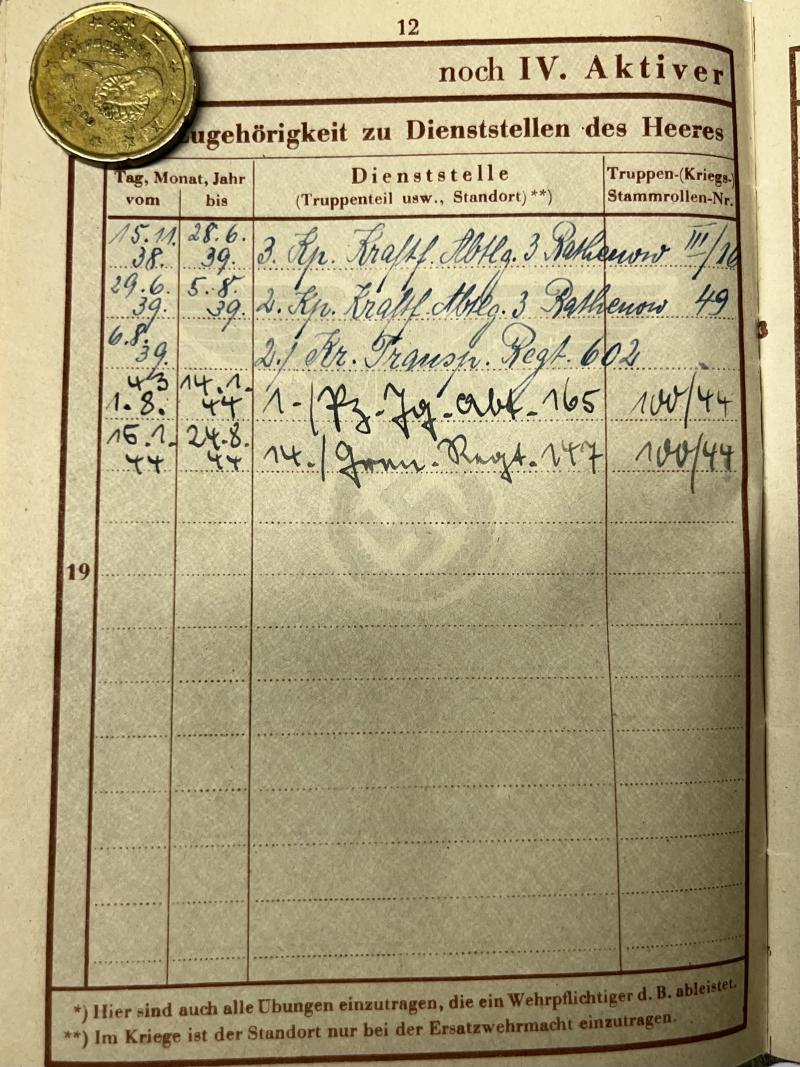 12
noch IV. Aktiver
Zugehörigkeit zu Dienststellen des Heeres
Tag, Monat, Jahr
vom bis
Dienststelle
(Truppenteil usw., Standort) **)
Truppen-(Kriegs-)
Stammrollen-Nr.
15.11. 38. 28.6. 39. 3. Kp. Kraftf. Abtlg. 3 Rathenow III/16
29.6. 39. 5.8. 39. 2. Kp. Kraftf. Abtlg. 3 Rathenow 49
6.8. 39. 2./ Kr. Transp. Regt. 602
43 1.8. 14.1. 44 1-/Pz-Jg-Abt-165 100/44
15.1. 44 24.8. 44 14-/Gren-Regt-147 100/44
19
*) Hier sind auch alle Übungen einzutragen, die ein Wehrpflichtiger d. B. ableistet.
**) Im Kriege ist der Standort nur bei der Ersatzwehrmacht einzutragen.